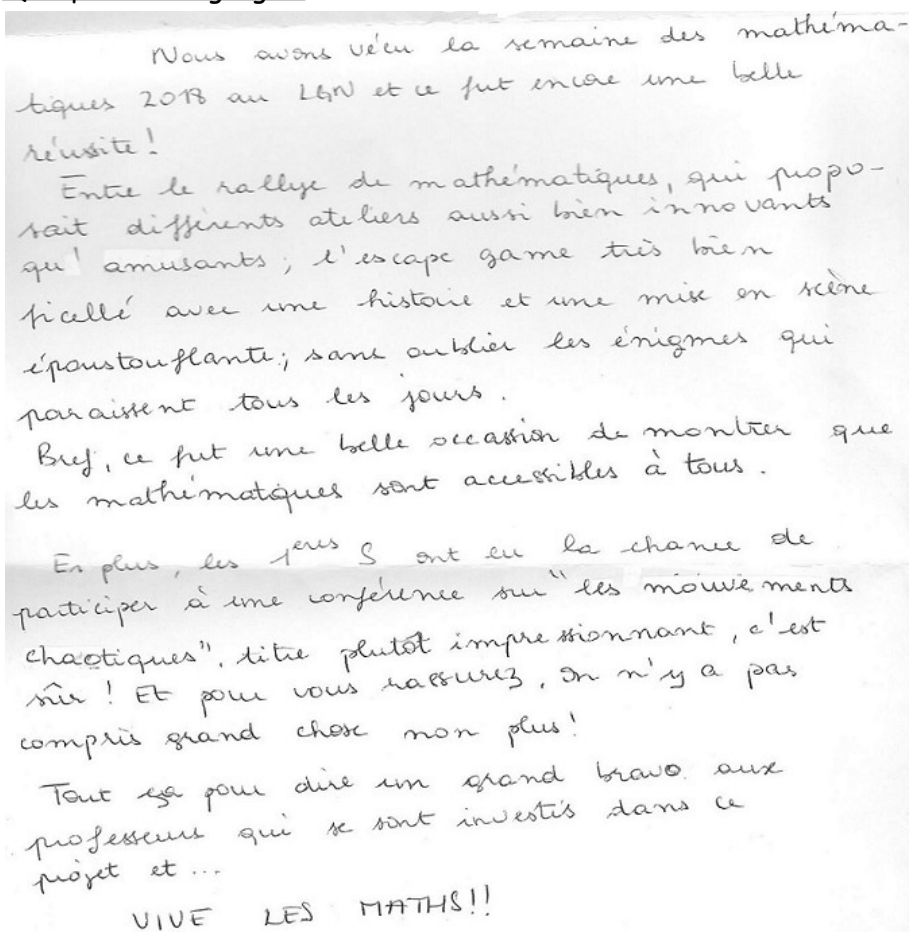 Nous avons vécu la semaine des mathéma-
tiques 2018 au LGN et ce fut encore une belle
réussite !
Entre le rallye de mathématiques, qui propo-
sait différents ateliers aussi bien innovants
qu'amusants ; l'escape game très bien
ficellé avec une histoire et une mise en scène
époustouflante ; sans oublier les énigmes qui
paraissent tous les jours.
Bref, ce fut une belle occassion de montrer que
les mathématiques sont accessibles à tous.
En plus, les 1eres S ont eu la chance de
participer à une conférence sur "les mouvements
chaotiques", titre plutôt impressionnant, c'est
sûr ! Et pour vous rassurez, on n'y a pas
compris grand chose non plus !
Tout ça pour dire un grand bravo aux
professeurs qui se sont investis dans ce
projet et ...
VIVE LES MATHS!!